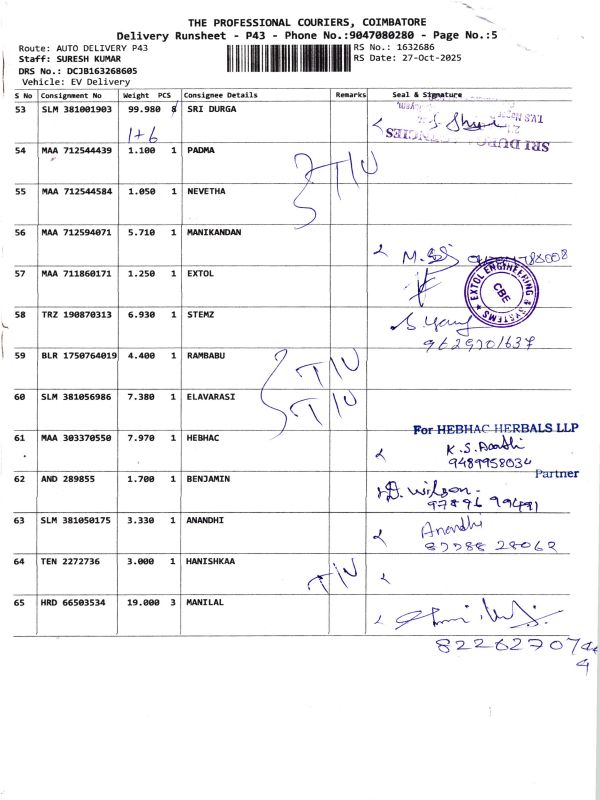 THE PROFESSIONAL COURIERS, COIMBATORE
Delivery Runsheet - P43 - Phone No.:9047080280 - Page No.:5
Route: AUTO DELIVERY P43
RS No.: 1632686
Staff: SURESH KUMAR
RS Date: 27-Oct-2025
DRS No.: DCJB163268605
Vehicle: EV Delivery
S No Consignment No Weight PCS Consignee Details Remarks Seal & Signature
53 SLM 381001903 99.980 SRI DURGA
1+6
SRI DURGA AGENCIES
54 MAA 712544439 1.100 1 PADMA
T/U
55 MAA 712544584 1.050 1 NEVETHA
56 MAA 712594071 5.710 1 MANIKANDAN
57 MAA 711860171 1.250 1 EXTOL
EXTOL ENGINEERING & SYSTEMS
CBE
58 TRZ 190870313 6.930 1 STEMZ
9629701637
59 BLR 1750764019 4.400 1 RAMBABU
T/U
60 SLM 381056986 7.380 1 ELAVARASI
T/U
For HEBHAC HERBALS LLP
61 MAA 303370550 7.970 1 HEBHAC
9489958034
Partner
62 AND 289855 1.700 1 BENJAMIN
D. Wilson
97896 99491
63 SLM 381050175 3.330 1 ANANDHI
Anandhi
64 TEN 2272736 3.000 1 HANISHKAA
T/U
65 HRD 66503534 19.000 3 MANILAL